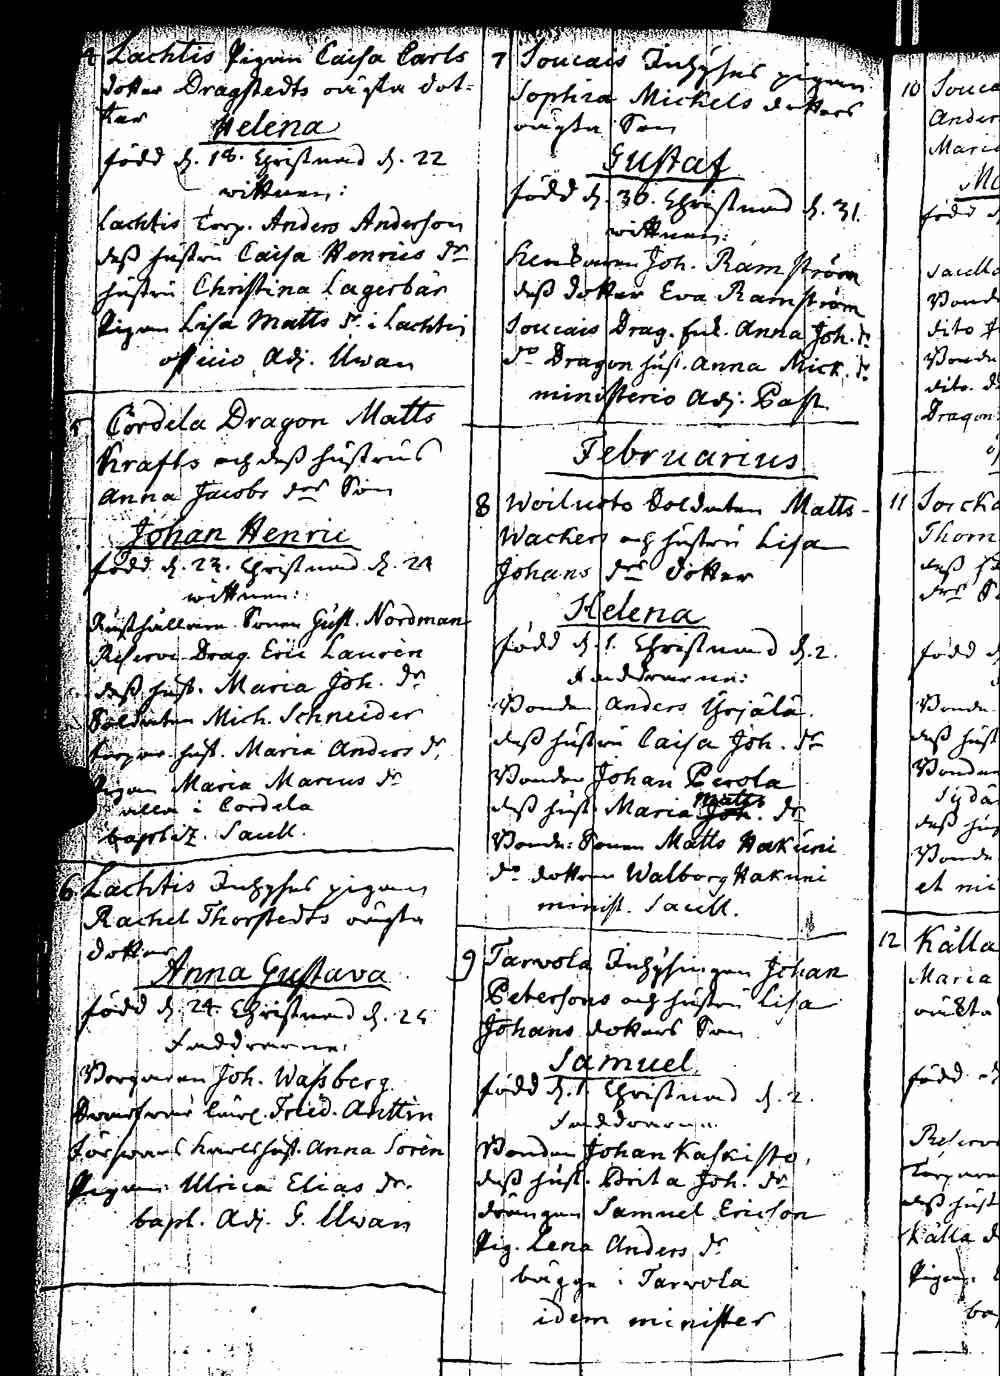 Lachtis Pigan Caisa Carls
dotter Dragstedts oägta dot-
ter
Helena
född d. 18. Christnad d. 22
wittnen:
Lachtis Torp. Anders Anderson
dess hustru Caisa Henrics dr
hustru Christina Lagerbär
Pigan Lisa Matts dr i Lachtis
officio Adj. Uwan
5 Cordela Dragon Matts
Krafts och dess hustrus
Anna Jacobs drs Son
Johan Henric
född d. 23. Christnad d. 24
wittnen:
Rusthållare Sonen Gust. Nordman
Reserve Drag. Eric Lauren
dess hust. Maria Joh. dr
Soldaten Mich. Schneider
Torpare hust. Maria Anders dr.
Pigan Maria Marcus dr
alla i Cordela
baptiz. Sacell.
6 Lachtis Inhyses pigan
Rachel Thorstedts oägta
dotter
Anna Gustava
född d. 24. Christnad d. 25
Faddrarne:
Borgaren Joh. Wassberg
Fried. Anttin
hust. Anna Soren
Pigan Ulrica Elias dr.
bapt. Adj. G. Uwan
7 Soucais Inhyses pigan
Sophia Michels dotters
oägta Son
Gustaf
född d. 30. Christnad d. 31.
wittnen:
Joh. Ramström
dess dotter Eva Ramström
Soucais Drag. Enk. Anna Joh. dr
do Dragon hust. Anna Mick. dr
ministerio Adj. Past.
Februarius
8 Woilusto Soldaten Matts
Wackers och hustru Lisa
Johans drs dotter
Helena
född d. 1. Christnad d. 2.
Faddrarne:
Bonden Anders Yrjälä
dess hustru Caisa Joh. dr
Bonden Johan Perola
dess hust. Maria Matts Joh. dr
Bonde: Sonen Matts Hakuni
do dottren Walborg Hakuni
minist. Sacell.
9 Tarvola Inhysingen Johan
Petersons och hustru Lisa
Johans dotters Son
Samuel
född d. 1. Christnad d. 2.
Faddrarne
Bonden Johan Kaskisto,
dess hust. Brita Joh. dr
drängen Samuel Ericson
Pig. Lena Anders dr
bägge i Tarvola
idem minister
10 Souca
Ander
Maria
Ma
född d
Sacella
Bonde
dito
Bonde
dito. d
Dragon
11 Sorcka
Thom
dess h
drs S
född d
Bonde
dess hust
Bonden
Sydä
dess hus
Bonde
et mi
12 Källa
Maria
oäkta
född d
Reserv
Torpare
dess hust
Källa d
Pigan
ba